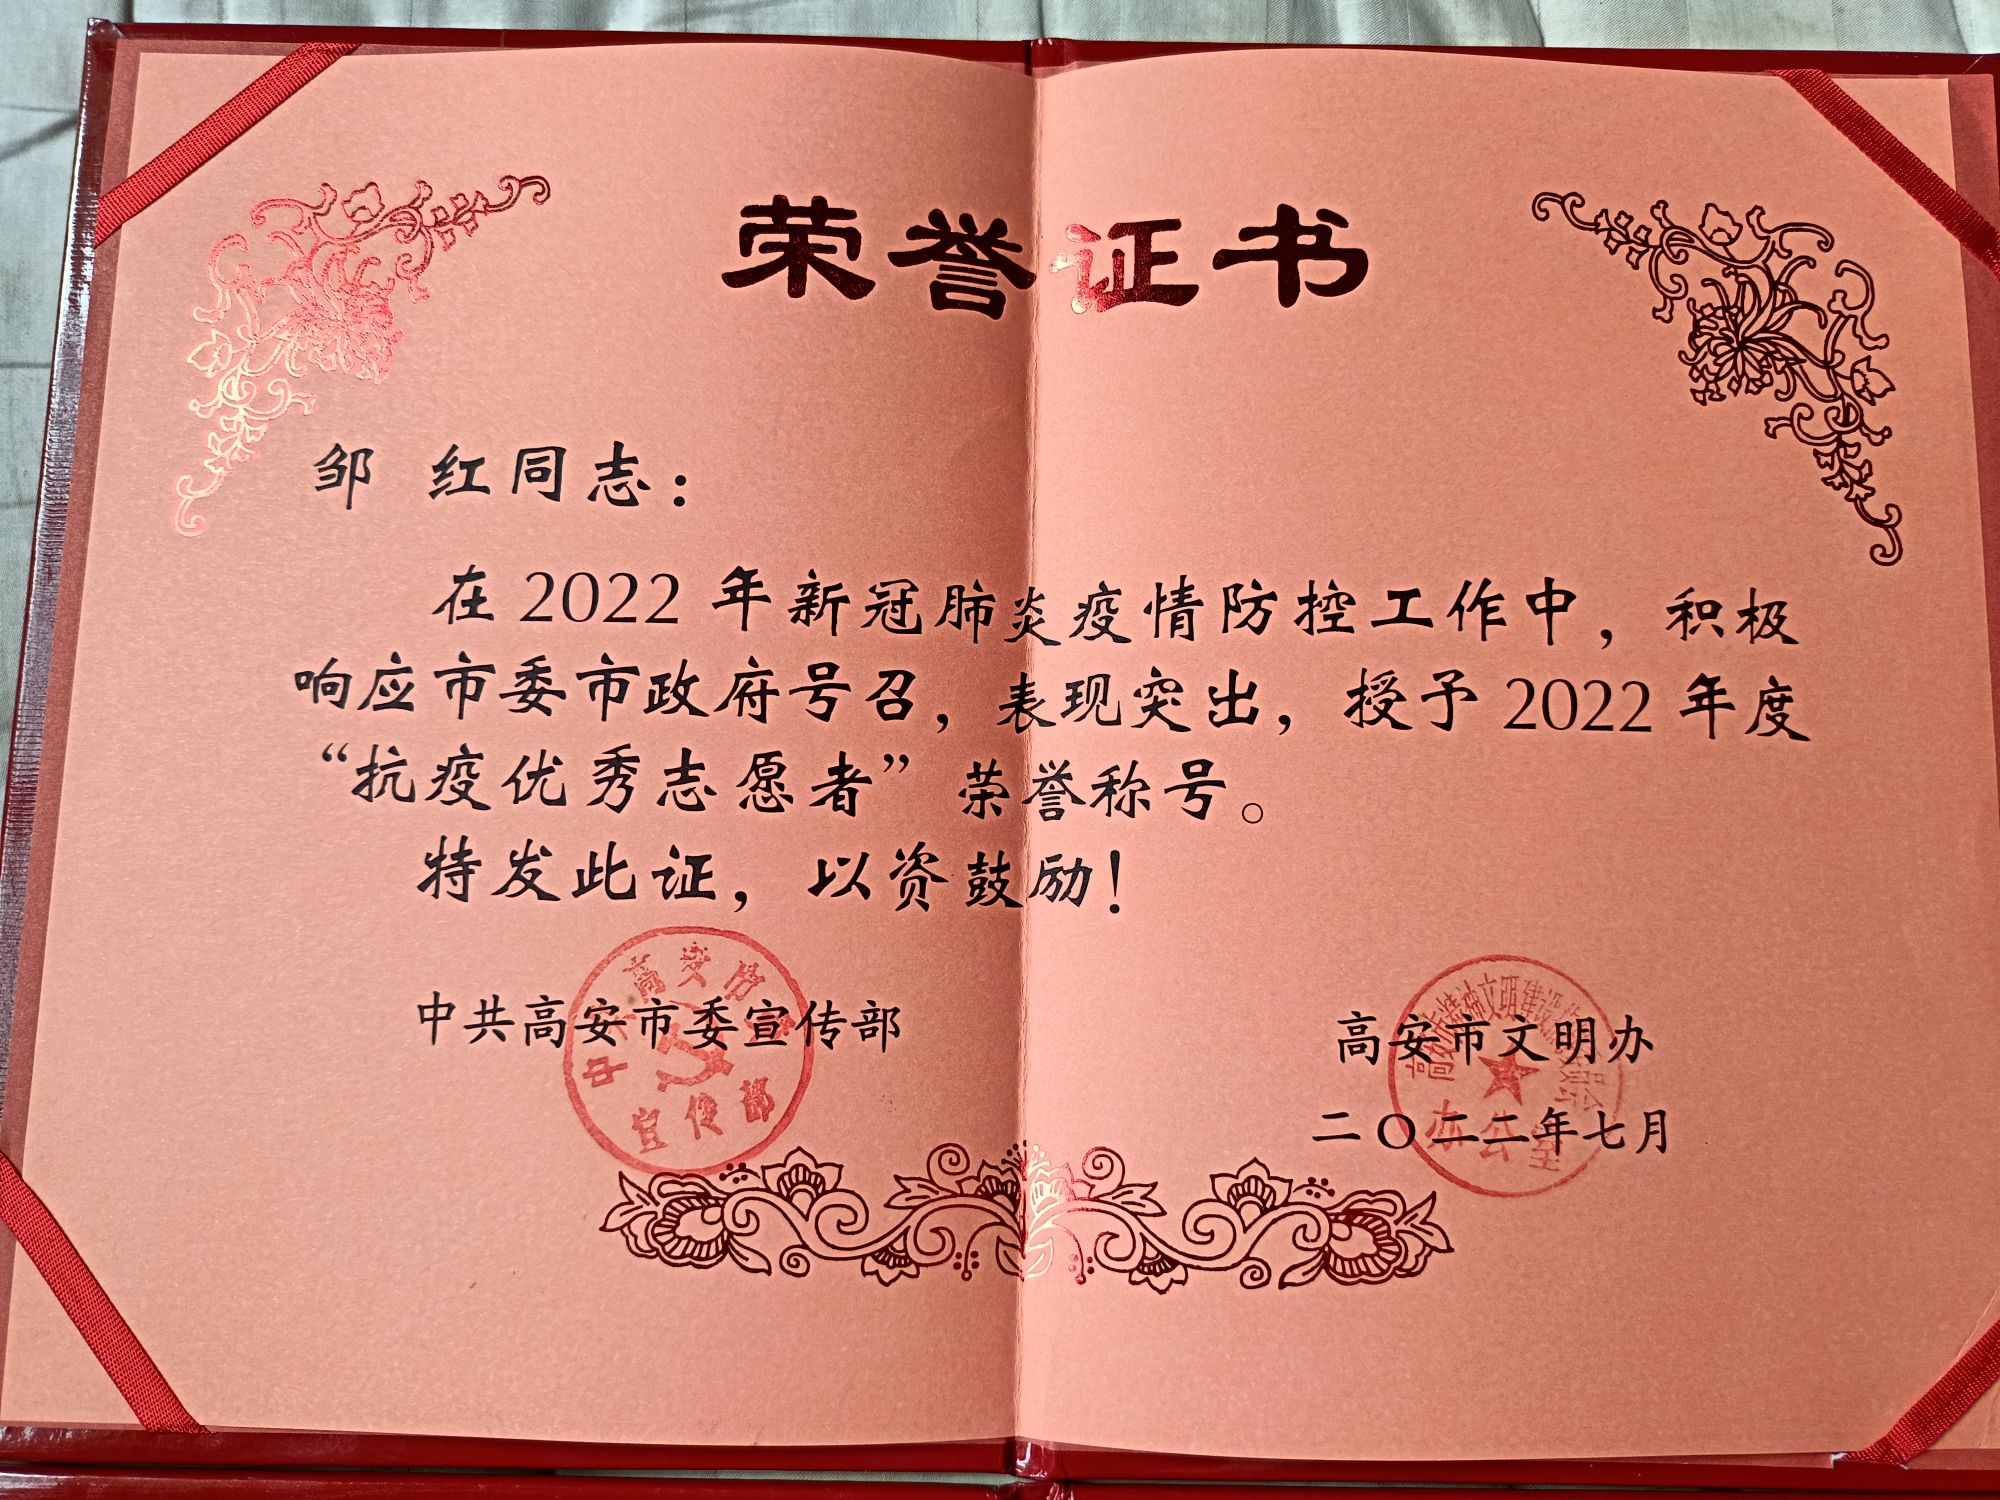 荣誉证书
邹 红同志：
在2022年新冠肺炎疫情防控工作中，积极
响应市委市政府号召，表现突出，授予2022年度
“抗疫优秀志愿者”荣誉称号。
特发此证，以资鼓励！
中共高安市委宣传部
中共高安市委
宣传部
高安市文明办
高安市精神文明建设指导委员会
办公室
二〇二二年七月